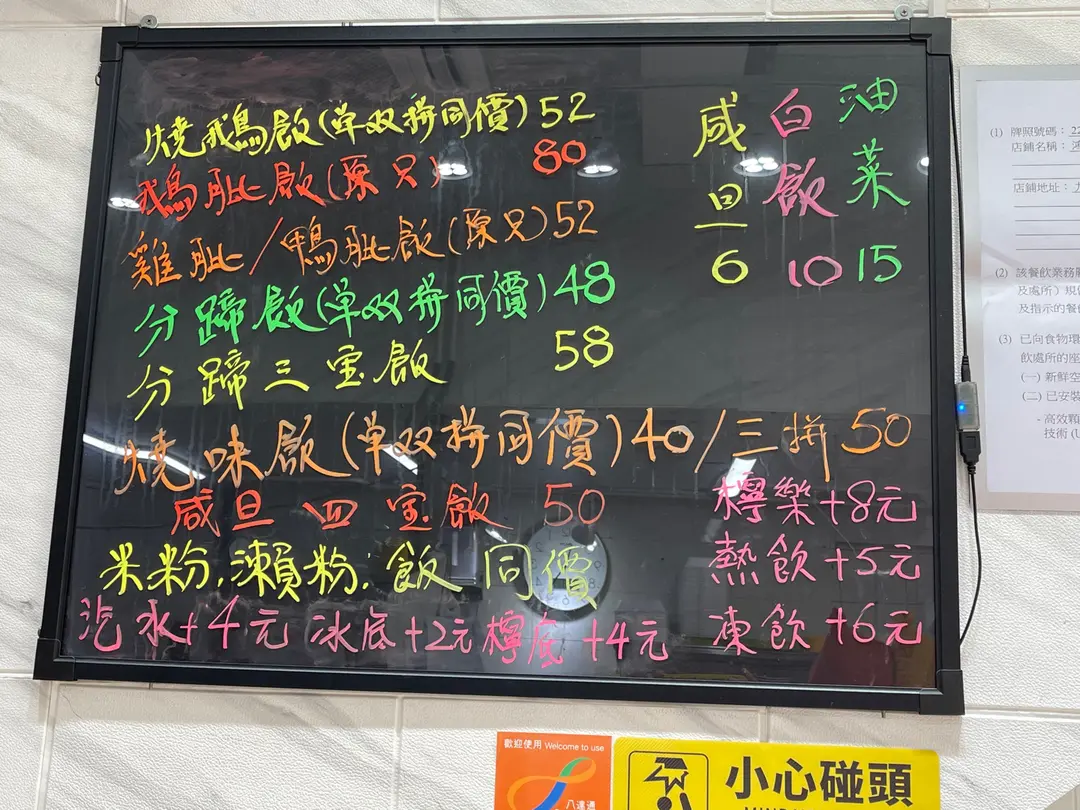 燒鵝飯(单双拼同價)52
鵝髀飯(原只) 80
雞髀/鴨髀飯(原只)52
分蹄飯(单双拼同價)48
分蹄三宝飯 58
燒味飯(单双拼同價)40/三拼50
咸旦四宝飯 50
米粉,瀨粉:飯 同價
汽水+4元 冰底+2元 檸底+4元
咸旦 6
白飯 10
油菜 15
檸樂+8元
熱飲+5元
凍飲+6元
(1) 牌照號碼:
店鋪名稱:
店鋪地址:
(2) 該餐飲業務
及處所)
及指示的餐
(3) 已向食物環
飲處所的座
(一) 新鮮空
(二) 已安裝
- 高效顆
技術 (U
歡迎使用 Welcome to use
八達通
小心碰頭